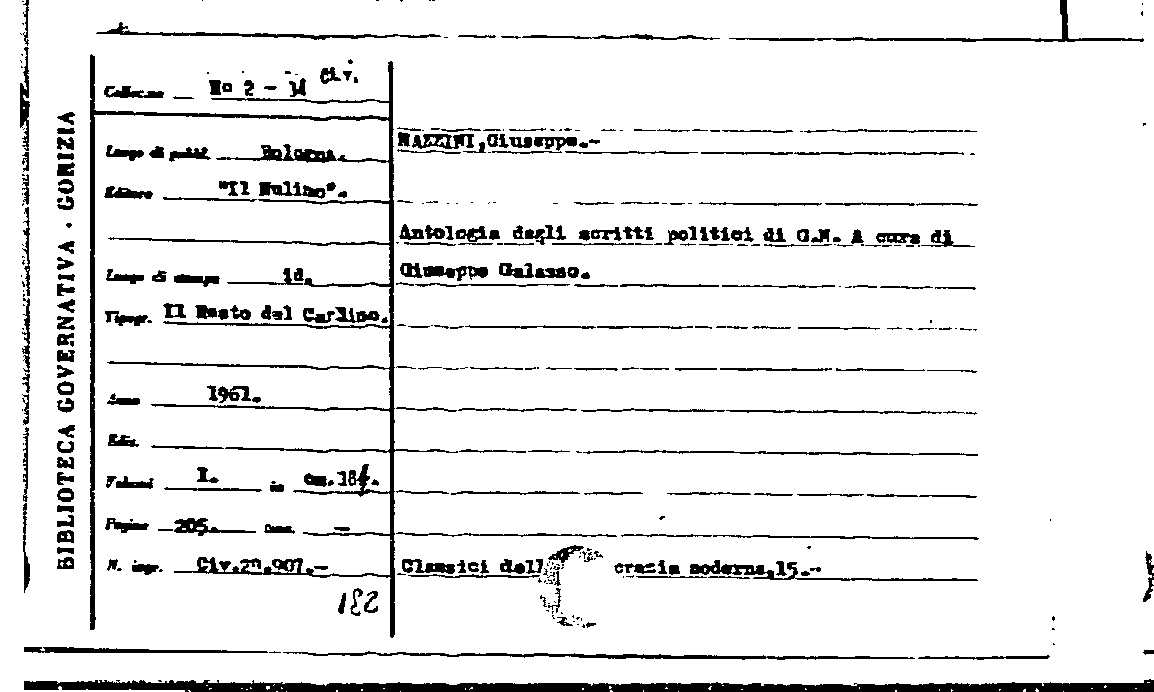 BIBLIOTECA GOVERNATIVA · GORIZIA
Collocaz. Mo 2 - 14 Civ.
Luogo di pubbl. Bologna.
Editore "Il Mulino".
Luogo di stampa id.
Tipogr. Il Resto del Carlino.
Anno 1961.
Ediz.
Volumi I. in cm.18½.
Pagine 205.
N. ingr. Civ.27.907.-
182
MAZZINI,Giuseppe.-
Antologia degli scritti politici di G.M. A cura di
Giuseppe Galasso.
Classici dell crazia moderna,15.-